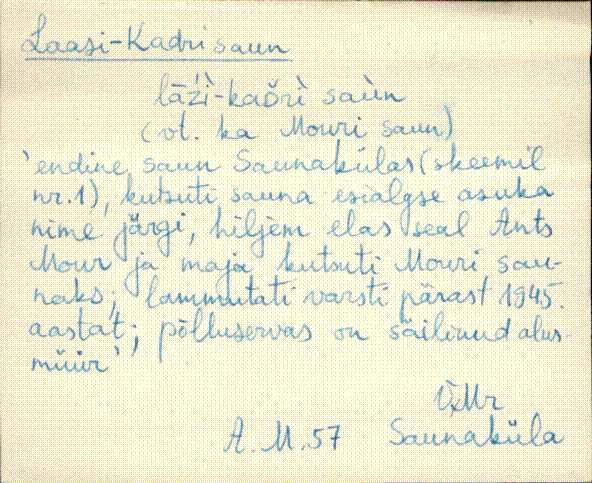 Laasi-Kadri saun
lāźì-kaðrì saùn
(vt. ka Mouri saun)
'endine saun Saunakülas (skeemil
nr. 1), kutsuti sauna esialgse asuka
nime järgi, hiljem elas seal Ants
Mour ja maja kutsuti Mouri sau-
naks; lammutati varsti pärast 1945.
aastat; põlluservas on säilinud alus-
müür'
VMr
A.M. 57 Saunaküla